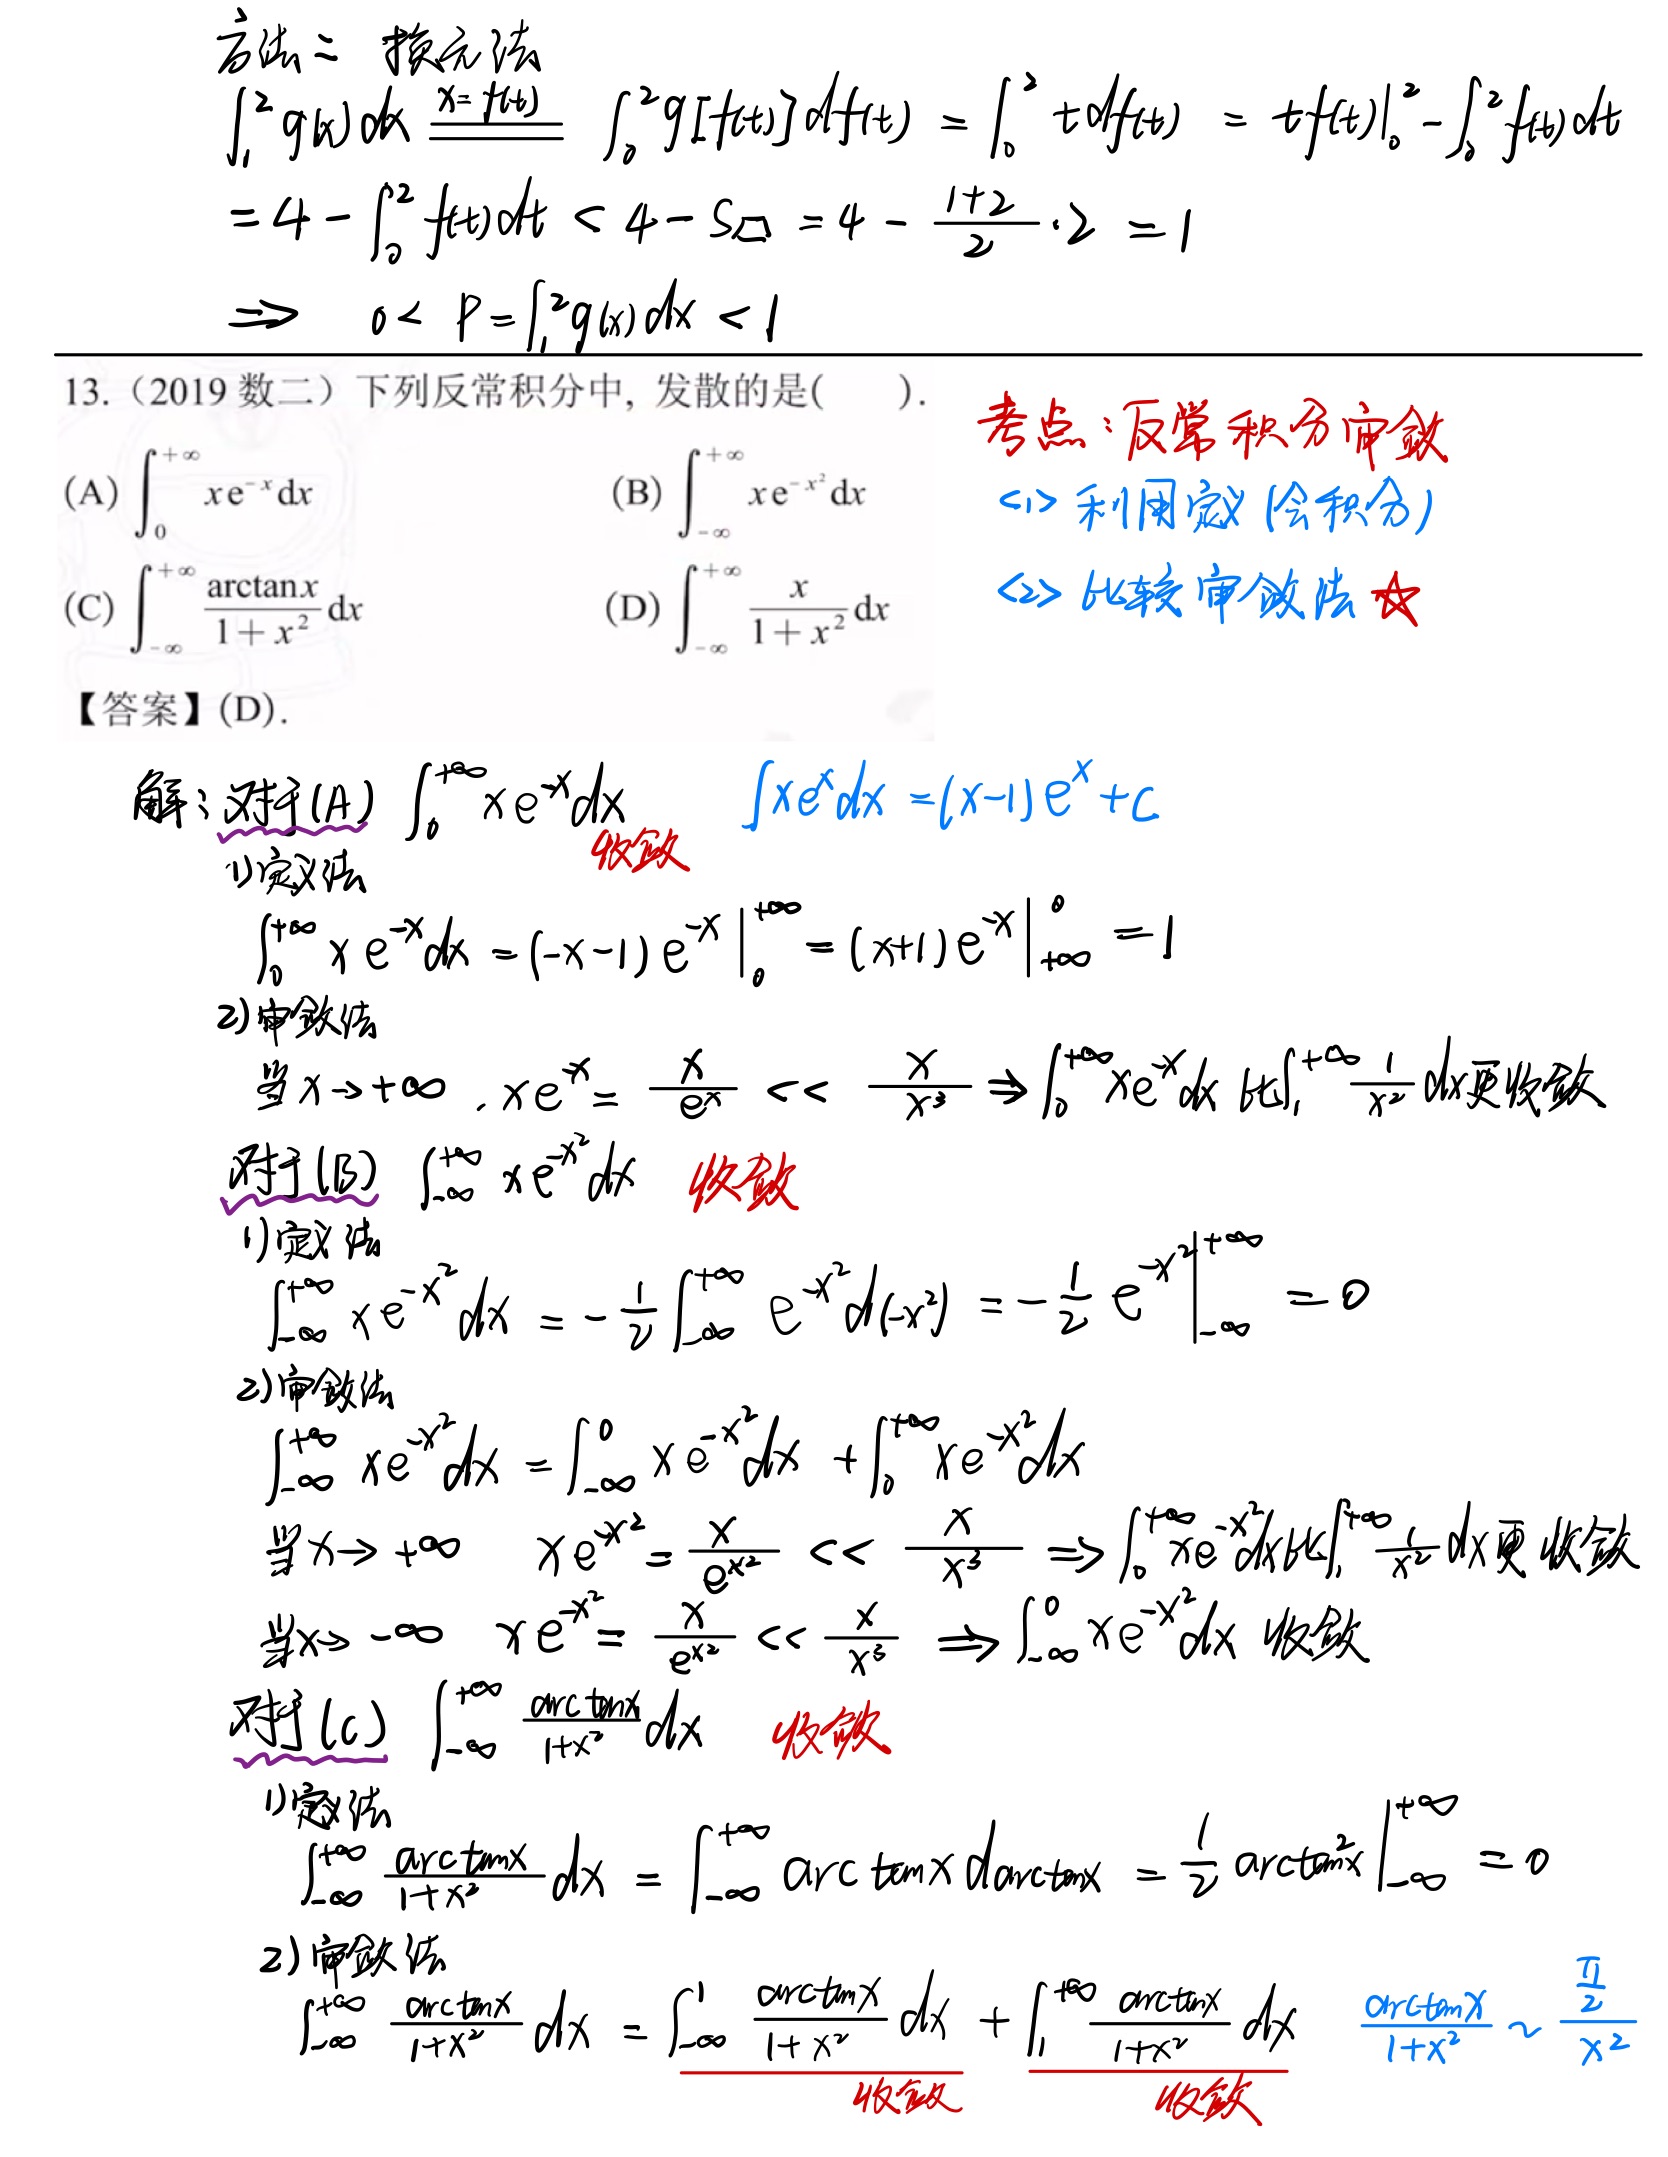 方法二 换元法
∫₁² g(x)dx \xlongequal{x=f(t)} ∫₀² g[f(t)]df(t) = ∫₀² t df(t) = tf(t)|₀² - ∫₀² f(t)dt
= 4 - ∫₀² f(t)dt < 4 - S▱ = 4 - \frac{1+2}{2}·2 = 1
⇒ 0 < P = ∫₁² g(x)dx < 1
13.（2019 数二）下列反常积分中, 发散的是(  ).
考点：反常积分审敛
(A) ∫_0^{+∞} xe^{-x}dx (B) ∫_{-∞}^{+∞} xe^{-x²}dx
<1> 利用定义(会积分)
(C) ∫_{-∞}^{+∞} \frac{arctan x}{1+x²}dx (D) ∫_{-∞}^{+∞} \frac{x}{1+x²}dx
<2> 比较审敛法 ☆
【答案】(D).
解：对于(A) ∫_0^{+∞} xe^{-x}dx 收敛 ∫xe^x dx = (x-1)e^x + C
1)定义法
∫_0^{+∞} xe^{-x}dx = (-x-1)e^{-x}|_0^{+∞} = (x+1)e^{-x}|_{+∞}^0 = 1
2)审敛法
当x→+∞, xe^{-x} = \frac{x}{e^x} << \frac{x}{x³} ⇒ ∫_0^{+∞} xe^{-x}dx 比∫_1^{+∞} \frac{1}{x²}dx更收敛
对于(B) ∫_{-∞}^{+∞} xe^{-x²}dx 收敛
1)定义法
∫_{-∞}^{+∞} xe^{-x²}dx = -\frac{1}{2}∫_{-∞}^{+∞} e^{-x²}d(-x²) = -\frac{1}{2}e^{-x²}|_{-∞}^{+∞} = 0
2)审敛法
∫_{-∞}^{+∞} xe^{-x²}dx = ∫_{-∞}^0 xe^{-x²}dx + ∫_0^{+∞} xe^{-x²}dx
当x→+∞ xe^{-x²} = \frac{x}{e^{x²}} << \frac{x}{x³} ⇒ ∫_0^{+∞} xe^{-x²}dx比∫_1^{+∞} \frac{1}{x²}dx更收敛
当x→-∞ xe^{-x²} = \frac{x}{e^{x²}} << \frac{x}{x³} ⇒ ∫_{-∞}^0 xe^{-x²}dx 收敛
对于(C) ∫_{-∞}^{+∞} \frac{arctanx}{1+x²}dx 收敛
1)定义法
∫_{-∞}^{+∞} \frac{arctanx}{1+x²}dx = ∫_{-∞}^{+∞} arctanx darctanx = \frac{1}{2}arctan²x|_{-∞}^{+∞} = 0
2)审敛法
∫_{-∞}^{+∞} \frac{arctanx}{1+x²}dx = ∫_{-∞}^1 \frac{arctanx}{1+x²}dx + ∫_1^{+∞} \frac{arctanx}{1+x²}dx \frac{arctanx}{1+x²} ~ \frac{\frac{π}{2}}{x²}
收敛 收敛